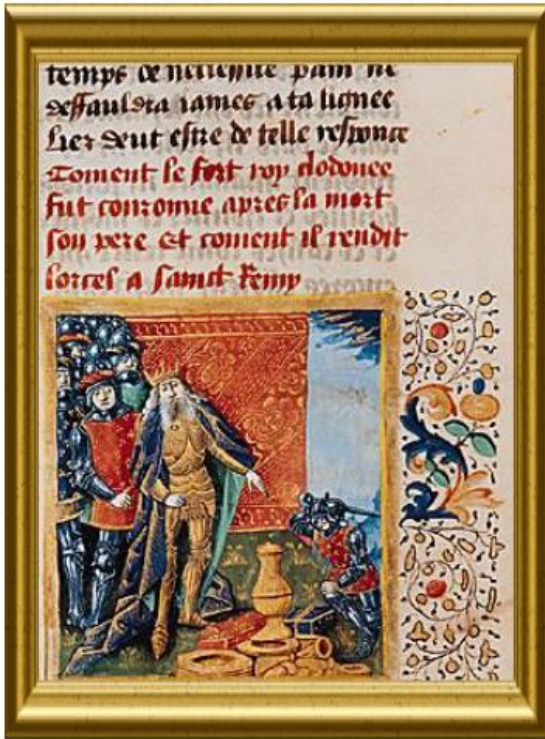 temps de necessite pain ne
deffauldra iames a ta lignee
Lier deut estre de telle responce
Coment le fort roy clodouee
fut couronne apres la mort
son pere et coment il rendit
lorcel a sainct Remy